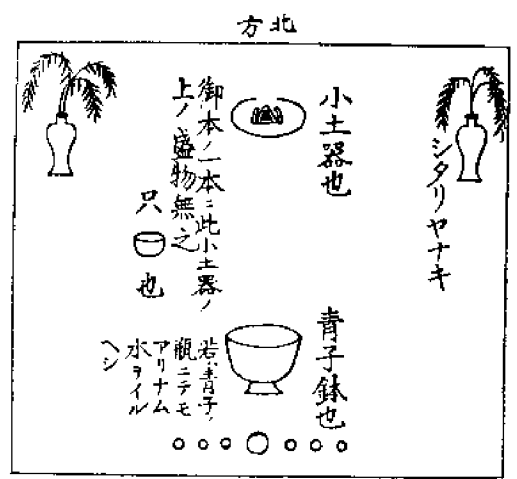 北方
シタリヤナキ
小土器也
御本ノ一本ニ此小土器ノ
上ノ盛物無之
只
也
青子鉢也
若青子ノ
瓶ニテモ
アリナム
水ヲイル
ヘシ